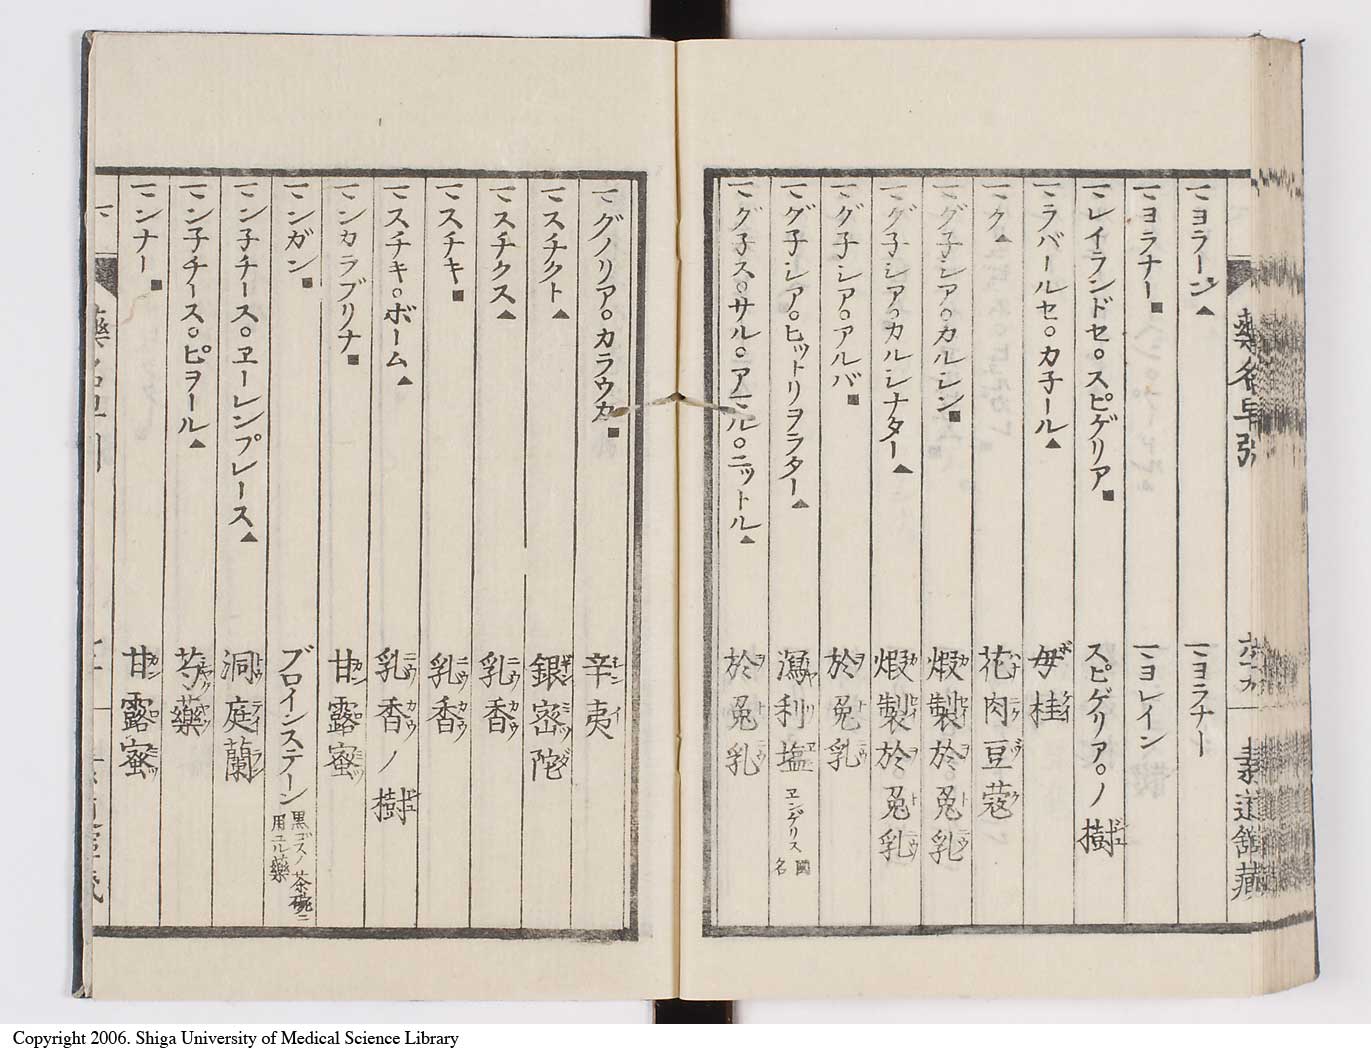 マヨラーン▲ マヨラナー
マヨラナー■ マヨレイン
マレイランドセ。スピゲリア■ スピゲリア。ノ樹
マラバールセ。カ子ール▲ 毋桂
マク▲ 花肉豆蔻
マグ子シア。カルシン■ 煆製於。兎乳
マグ子シア。カルシナター▲ 煆製於。兎乳
マグ子シア。アルバ■ 於兎乳
マグ子シア。ヒットリヲラター▲ 瀉利塩 ヱンゲリス國名
マグ子ス。サル。アマル。ニットル▲ 於兎乳
藥名早引
素道舘藏
マグノリア。カラウカ■ 辛夷
マスチクト▲ 銀密陀
マスチクス▲ 乳香
マスチキ■ 乳香
マスチキ。ボーム▲ 乳香ノ樹
マンカラブリナ■ 甘露蜜
マンガン■ ブロインステーン 黒ゴスノ茶碗ニ用ユル藥
マン子チース。ヱーレンプレース▲ 洞庭蘭
マン子チース。ピヲール▲ 芍藥
マンナー■ 甘露蜜
Copyright 2006. Shiga University of Medical Science Library